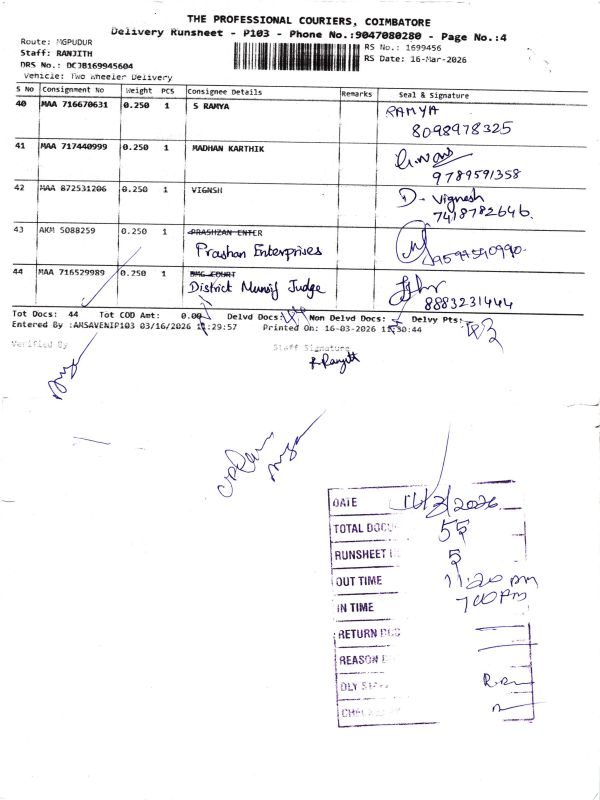 THE PROFESSIONAL COURIERS, COIMBATORE
Delivery Runsheet - P103 - Phone No.:9047080280 - Page No.:4
Route: MGPUDUR
RS No.: 1699456
Staff: RANJITH
RS Date: 16-Mar-2026
DRS No.: DCJB169945604
Vehicle: Two Wheeler Delivery
S No Consignment No Weight PCS Consignee Details Remarks Seal & Signature
40 MAA 716670631 0.250 1 S RAMYA RAMYA
8098978325
41 MAA 717440999 0.250 1 MADHAN KARTHIK
9789591358
42 MAA 872531206 0.250 1 VIGNSH D. Vignesh
7418782646.
43 AKM 5088259 0.250 1 PRASHZAN ENTER
Prashan Enterprises
44 MAA 716529989 0.250 1 DMG COURT
District Munsif Judge
8883231444
Tot Docs: 44 Tot COD Amt: 0.00 Delvd Docs: Non Delvd Docs: Delvy Pts:
Entered By :AMSAVENIP103 03/16/2026 11:29:57 Printed On: 16-03-2026 11:30:44
Verified By Staff Signature
R. Ranjith
DATE 16/3/2026
TOTAL DOCU 55
RUNSHEET 5
OUT TIME 11:20 am
IN TIME 7:00 PM
RETURN DOC
REASON
DLY STAFF